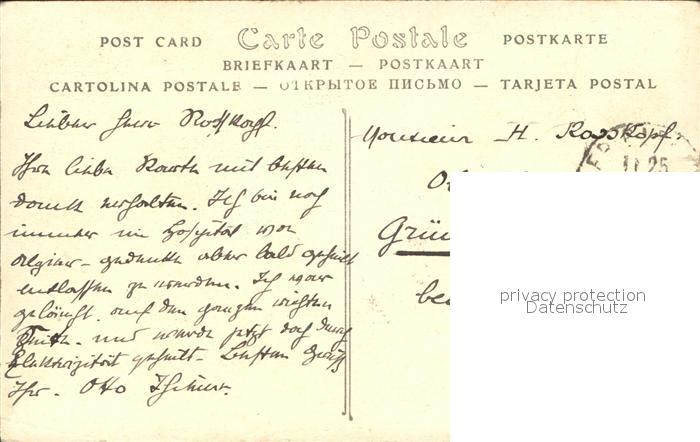 POST CARD Carte Postale POSTKARTE
BRIEFKAART — POSTKAART
CARTOLINA POSTALE — ОТКРЫТОЕ ПИСЬМО — TARJETA POSTAL
Lieber Herr Rosskopf.
Ihre liebe Karte mit bestem
Dank erhalten. Ich bin noch
immer im Hospital von
Algier - gedenke aber bald geheilt
entlassen zu werden. Ich war
gelähmt auf der ganzen rechten
Seite. und werde jetzt doch durch
Elektrizität geheilt - Besten Gruß
Ihr. Otto
Monsieur H. Rosskopf.
11 25
Grü
be
privacy protection
Datenschutz